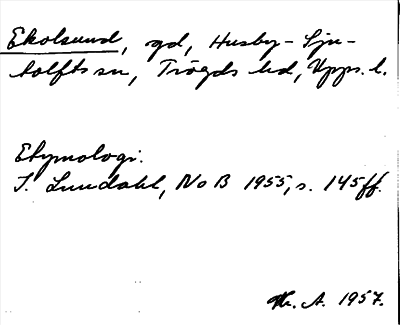 Ekolsund, gd, Husby-Sju-
tolfts sn, Trögds hd, Upps. l.
Etymologi:
I. Lundahl, NoB 1955, s. 145ff.
Th. A. 1957.